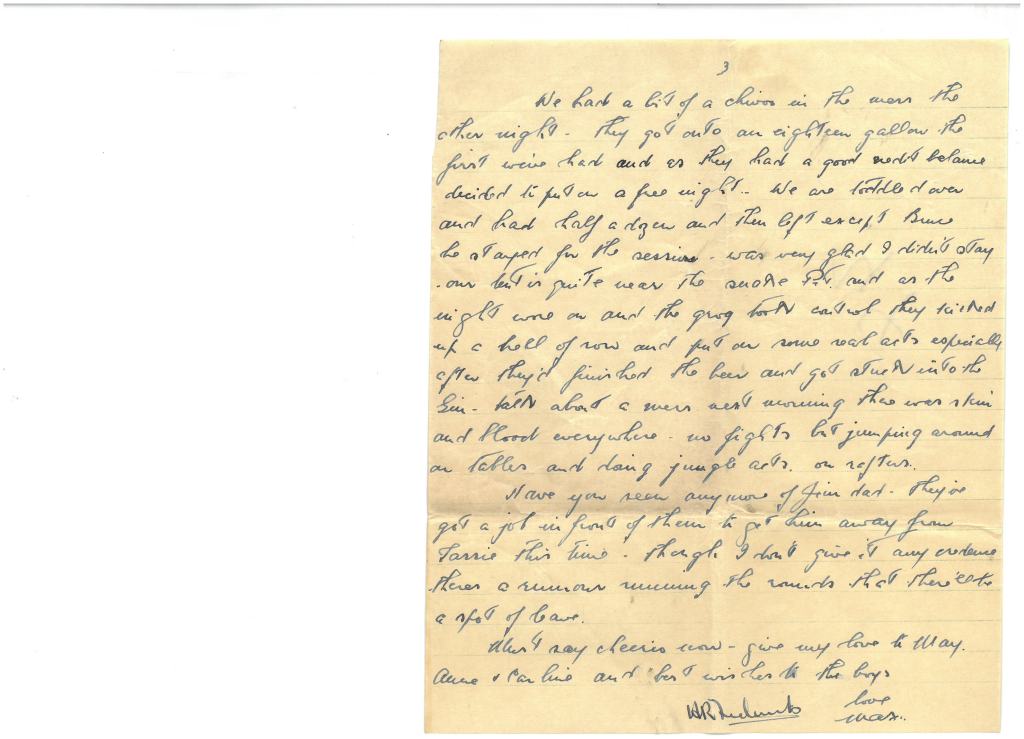 3
We had a bit of a chivoo in the mess the
other night - they got onto an eighteen gallon the
first we've had and as they had a good credit balance
decided to put on a free night.. We are toddled over
and had half a dozen and then left except Bruce
he stayed for the session - was very glad I didn't stay
- our tent is quite near the snake Pit. and as the
night wore on and the grog took control they kicked
up a hell of row and put on some real acts especially
after they'd finished the beer and got stuck into the
Gin - talk about a mess next morning there was skin
and blood everywhere - no fights but jumping around
on tables and doing jungle acts. on rafters.
Have you seen anymore of Jim dad - they've
got a job in front of them to get him away from
Tassie this time - though I don't give it any credence
theres a rumour running the rounds that there'll be
a spot of leave.
Must say cheerio now - give my love to May.
Anne & Caroline and best wishes to the boys
love
Max..